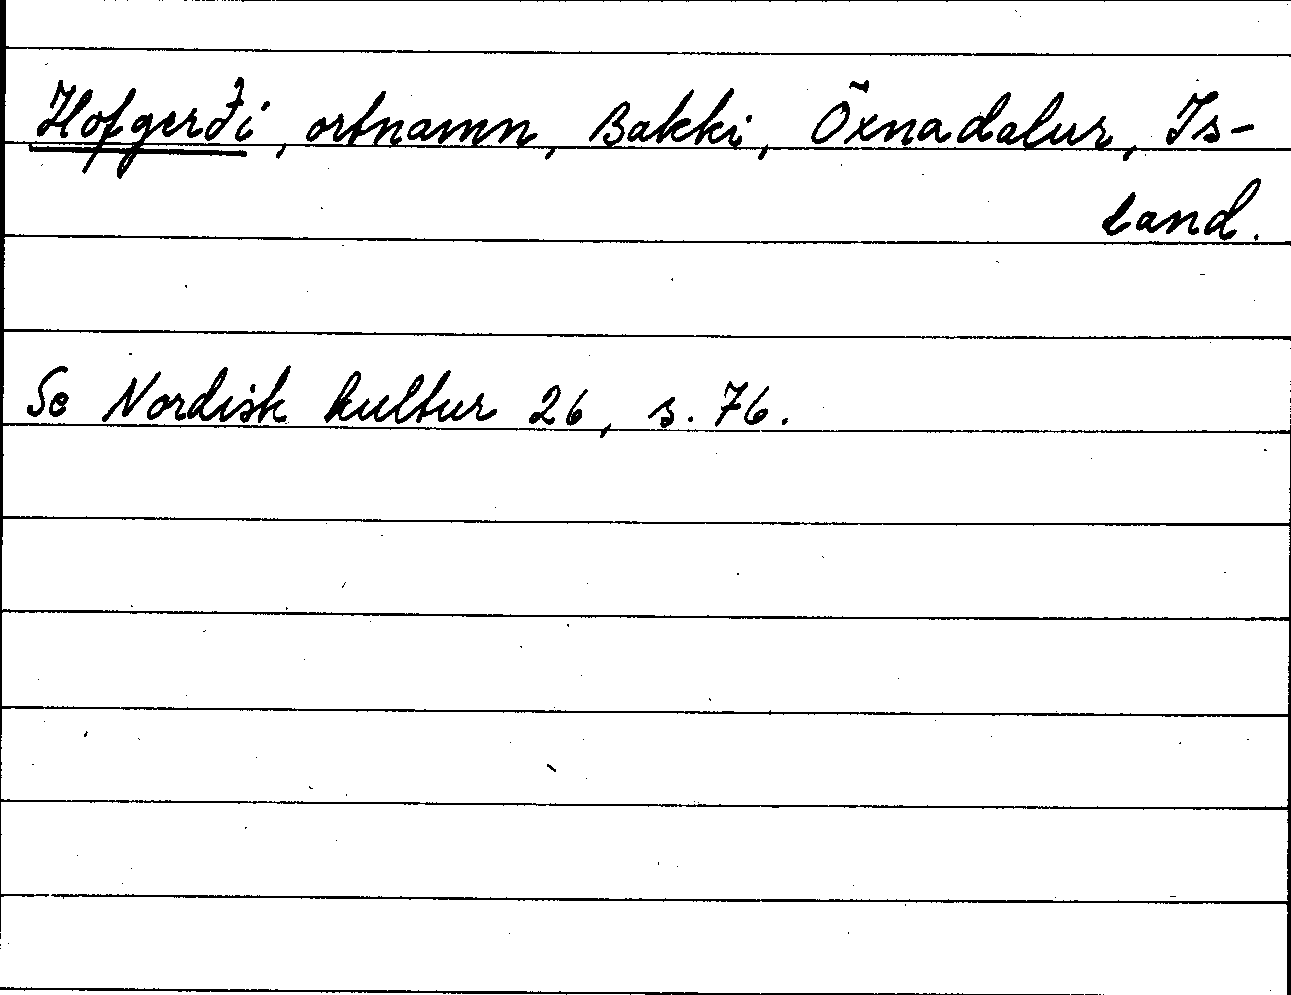 Hofgerði, ortnamn, Bakki, Öxnadalur, Is-
land.
Se Nordisk kultur 26, s. 76.